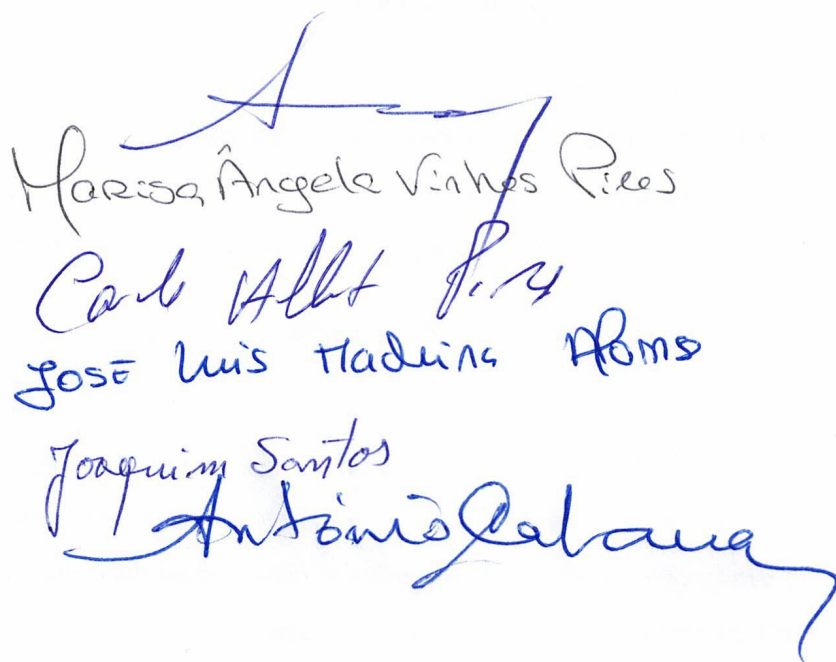 Marisa Ângela Vinhas Pires
Carlos Pires
José Luis Madeira Afonso
Joaquim Santos
António Cabana